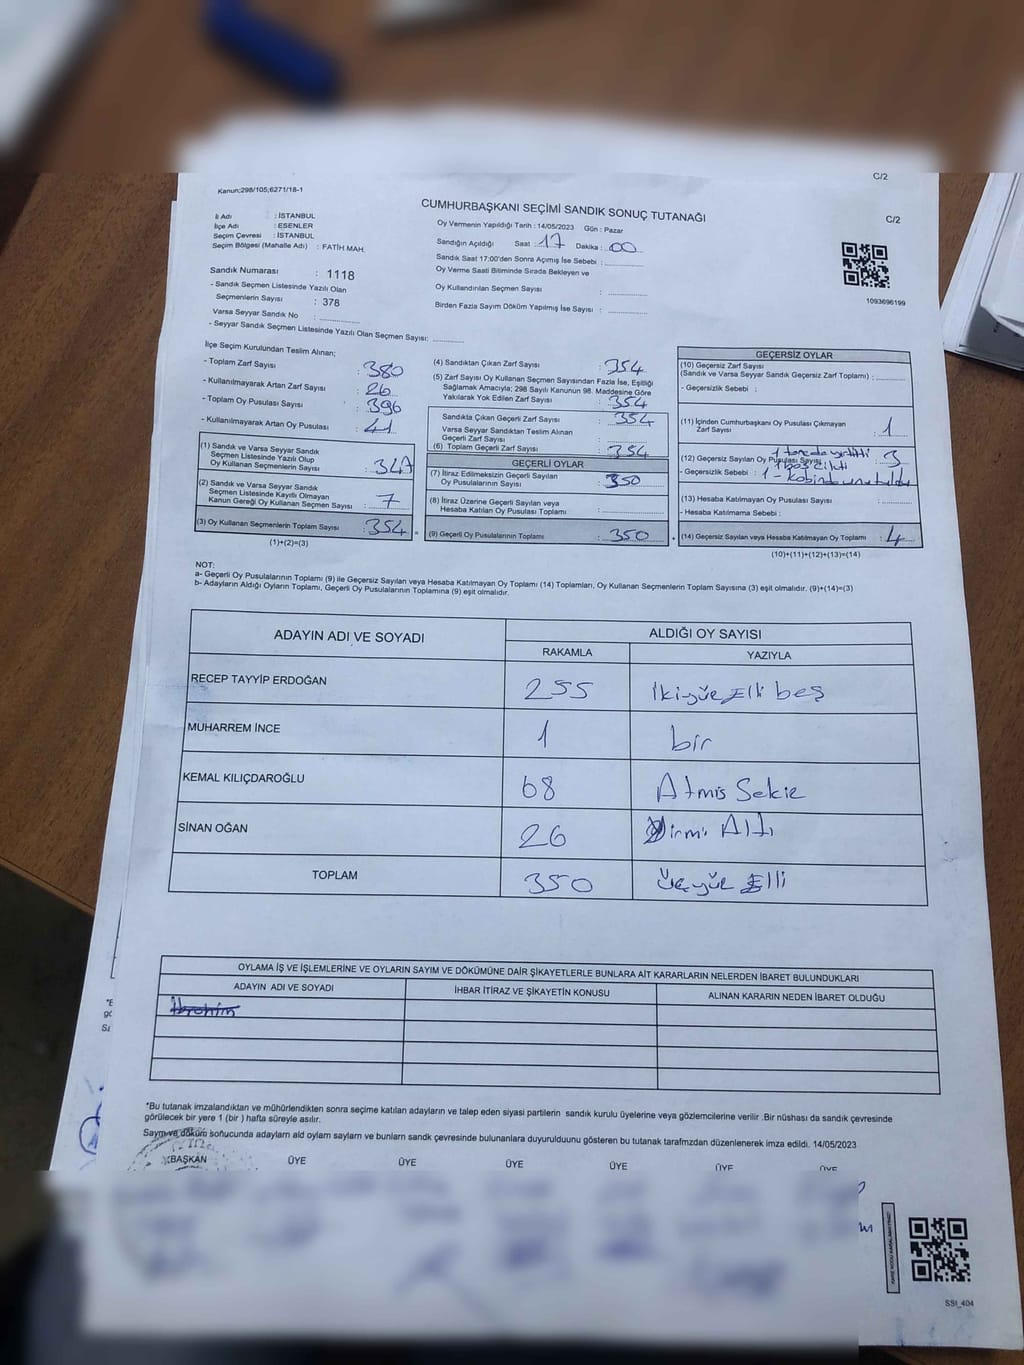 C/2
Kanun;298/105;6271/18-1
CUMHURBAŞKANI SEÇİMİ SANDIK SONUÇ TUTANAĞI
C/2
İl Adı : İSTANBUL
İlçe Adı : ESENLER
Seçim Çevresi : İSTANBUL
Seçim Bölgesi (Mahalle Adı) : FATİH MAH.
Oy Vermenin Yapıldığı Tarih : 14/05/2023 Gün : Pazar
Sandığın Açıldığı Saat : 17 Dakika : 00
Sandık Saat 17:00'den Sonra Açımış İse Sebebi :
Oy Verme Saati Bitiminde Sırada Bekleyen ve
Oy Kullandırılan Seçmen Sayısı :
Birden Fazla Sayım Döküm Yapılmış İse Sayısı :
1093696199
Sandık Numarası : 1118
- Sandık Seçmen Listesinde Yazılı Olan
Seçmenlerin Sayısı : 378
Varsa Seyyar Sandık No :
- Seyyar Sandık Seçmen Listesinde Yazılı Olan Seçmen Sayısı:
İlçe Seçim Kurulundan Teslim Alınan;
- Toplam Zarf Sayısı : 380
- Kullanılmayarak Artan Zarf Sayısı : 26
- Toplam Oy Pusulası Sayısı : 396
- Kullanılmayarak Artan Oy Pusulası : 41
(1) Sandık ve Varsa Seyyar Sandık
Seçmen Listesinde Yazılı Olup
Oy Kullanan Seçmenlerin Sayısı : 347
(2) Sandık ve Varsa Seyyar Sandık
Seçmen Listesinde Kayıtlı Olmayan
Kanun Gereği Oy Kullanan Seçmen Sayısı : 7
(3) Oy Kullanan Seçmenlerin Toplam Sayısı : 354
(1)+(2)=(3)
(4) Sandıktan Çıkan Zarf Sayısı : 354
(5) Zarf Sayısı Oy Kullanan Seçmen Sayısından Fazla İse, Eşitliği
Sağlamak Amacıyla; 298 Sayılı Kanunun 98. Maddesine Göre
Yakılarak Yok Edilen Zarf Sayısı : 354
Sandıkta Çıkan Geçerli Zarf Sayısı : 354
Varsa Seyyar Sandıktan Teslim Alınan
Geçerli Zarf Sayısı :
(6) Toplam Geçerli Zarf Sayısı : 354
GEÇERLİ OYLAR
(7) İtiraz Edilmeksizin Geçerli Sayılan
Oy Pusulası Sayısı : 350
(8) İtiraz Üzerine Geçerli Sayılan veya
Hesaba Katılan Oy Pusulası Toplamı :
(9) Geçerli Oy Pusulalarının Toplamı : 350
GEÇERSİZ OYLAR
(10) Geçersiz Zarf Sayısı
(Sandık ve Varsa Seyyar Sandık Geçersiz Zarf Toplamı) :
- Geçersizlik Sebebi :
(11) İçinden Cumhurbaşkanı Oy Pusulası Çıkmayan
Zarf Sayısı : 1
1 tanede yırtıktı
(12) Geçersiz Sayılan Oy Pusulası Sayısı : 3
1 boş
- Geçersizlik Sebebi : 1 - kabinde unutuldu
(13) Hesaba Katılmayan Oy Pusulası Sayısı :
- Hesaba Katılmama Sebebi :
(14) Geçersiz Sayılan veya Hesaba Katılmayan Oy Toplamı : 4
(10)+(11)+(12)+(13)=(14)
NOT:
a- Geçerli Oy Pusulalarının Toplamı (9) ile Geçersiz Sayılan veya Hesaba Katılmayan Oy Toplamı (14) Toplamları, Oy Kullanan Seçmenlerin Toplam Sayısına (3) eşit olmalıdır. (9)+(14)=(3)
b- Adayların Aldığı Oyların Toplamı, Geçerli Oy Pusulalarının Toplamına (9) eşit olmalıdır.
ADAYIN ADI VE SOYADI ALDIĞI OY SAYISI
RAKAMLA YAZIYLA
RECEP TAYYİP ERDOĞAN 255 İkiyüz Elli beş
MUHARREM İNCE 1 bir
KEMAL KILIÇDAROĞLU 68 Atmis Sekiz
SİNAN OĞAN 26 Yirmi Altı
TOPLAM 350 Üçyüz Elli
OYLAMA İŞ VE İŞLEMLERİNE VE OYLARIN SAYIM VE DÖKÜMÜNE DAİR ŞİKAYETLERLE BUNLARA AİT KARARLARIN NELERDEN İBARET BULUNDUKLARI
ADAYIN ADI VE SOYADI İHBAR İTİRAZ VE ŞİKAYETİN KONUSU ALINAN KARARIN NEDEN İBARET OLDUĞU
İbrahim
*Bu tutanak imzalandıktan ve mühürlendikten sonra seçime katılan adayların ve talep eden siyasi partilerin sandık kurulu üyelerine veya gözlemcilerine verilir .Bir nüshası da sandık çevresinde
görülecek bir yere 1 (bir ) hafta süreyle asılır.
Sayım ve döküm sonucunda adayların ald oylam sayların ve bunların sandk çevresinde bulunanlara duyurulduunu gösteren bu tutanak tarafmzdan düzenlenerek imza edildi. 14/05/2023
BAŞKAN ÜYE ÜYE ÜYE ÜYE ÜYE ÜYE
SSI_404